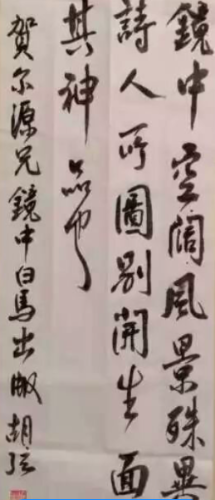 鏡中空闊風景殊異
詩人所圖別開生面
其神品也
賀尔源兄鏡中白馬出版胡弦